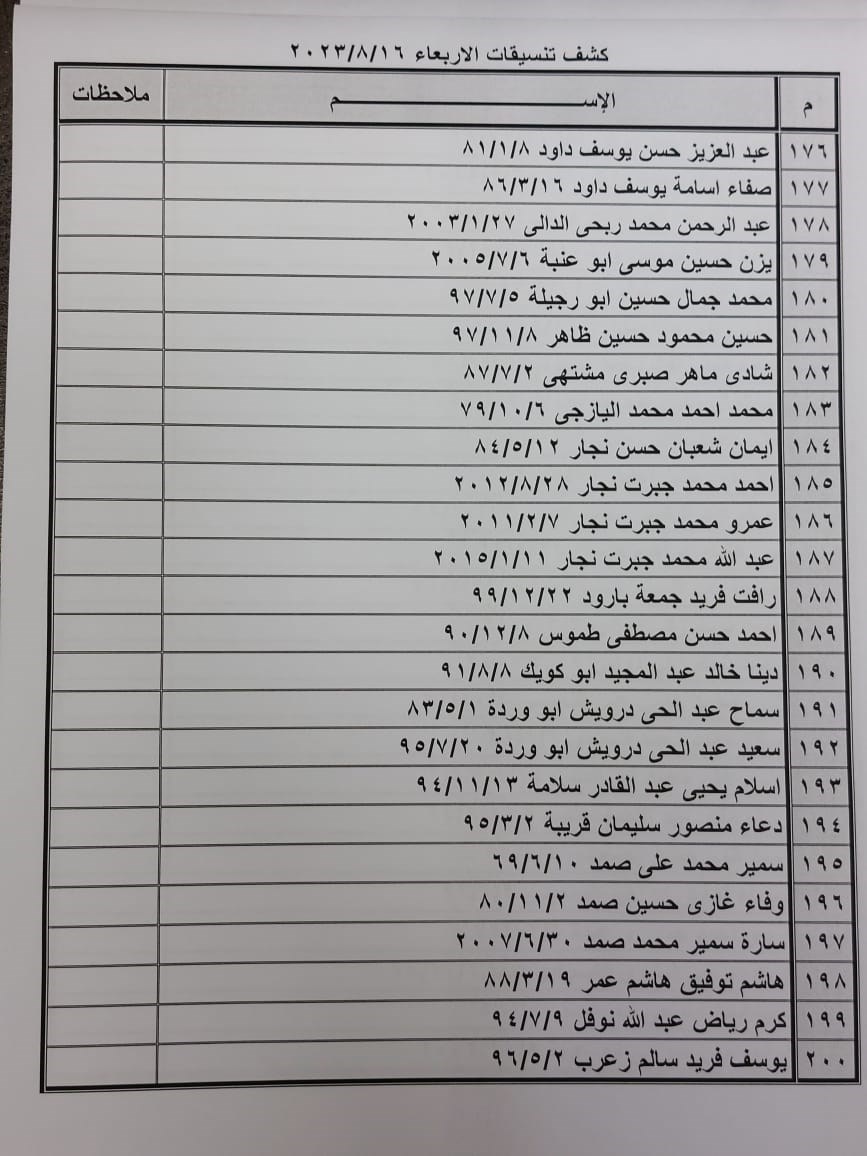 كشف تنسيقات الاربعاء ٢٠٢٣/٨/١٦
م الإســـــــم ملاحظات
١٧٦ عبد العزيز حسن يوسف داود ٨١/١/٨
١٧٧ صفاء اسامة يوسف داود ٨٦/٣/١٦
١٧٨ عبد الرحمن محمد ربحى الدالى ٢٠٠٣/١/٢٧
١٧٩ يزن حسين موسى ابو عنبة ٢٠٠٥/٧/٦
١٨٠ محمد جمال حسين ابو رجيلة ٩٧/٧/٥
١٨١ حسين محمود حسين ظاهر ٩٧/١١/٨
١٨٢ شادى ماهر صبرى مشتهى ٨٧/٧/٢
١٨٣ محمد احمد محمد اليازجى ٧٩/١٠/٦
١٨٤ ايمان شعبان حسن نجار ٨٤/٥/١٢
١٨٥ احمد محمد جبرت نجار ٢٠١٢/٨/٢٨
١٨٦ عمرو محمد جبرت نجار ٢٠١١/٢/٧
١٨٧ عبد الله محمد جبرت نجار ٢٠١٥/١/١١
١٨٨ رافت فريد جمعة بارود ٩٩/١٢/٢٢
١٨٩ احمد حسن مصطفى طموس ٩٠/١٢/٨
١٩٠ دينا خالد عبد المجيد ابو كويك ٩١/٨/٨
١٩١ سماح عبد الحى درويش ابو وردة ٨٣/٥/١
١٩٢ سعيد عبد الحى درويش ابو وردة ٩٥/٧/٢٠
١٩٣ اسلام يحيى عبد القادر سلامة ٩٤/١١/١٣
١٩٤ دعاء منصور سليمان قريبة ٩٥/٣/٢
١٩٥ سمير محمد على صمد ٦٩/٦/١٠
١٩٦ وفاء غازى حسين صمد ٨٠/١١/٢
١٩٧ سارة سمير محمد صمد ٢٠٠٧/٦/٣٠
١٩٨ هاشم توفيق هاشم عمر ٨٨/٣/١٩
١٩٩ كرم رياض عبد الله نوفل ٩٤/٧/٩
٢٠٠ يوسف فريد سالم زعرب ٩٦/٥/٢